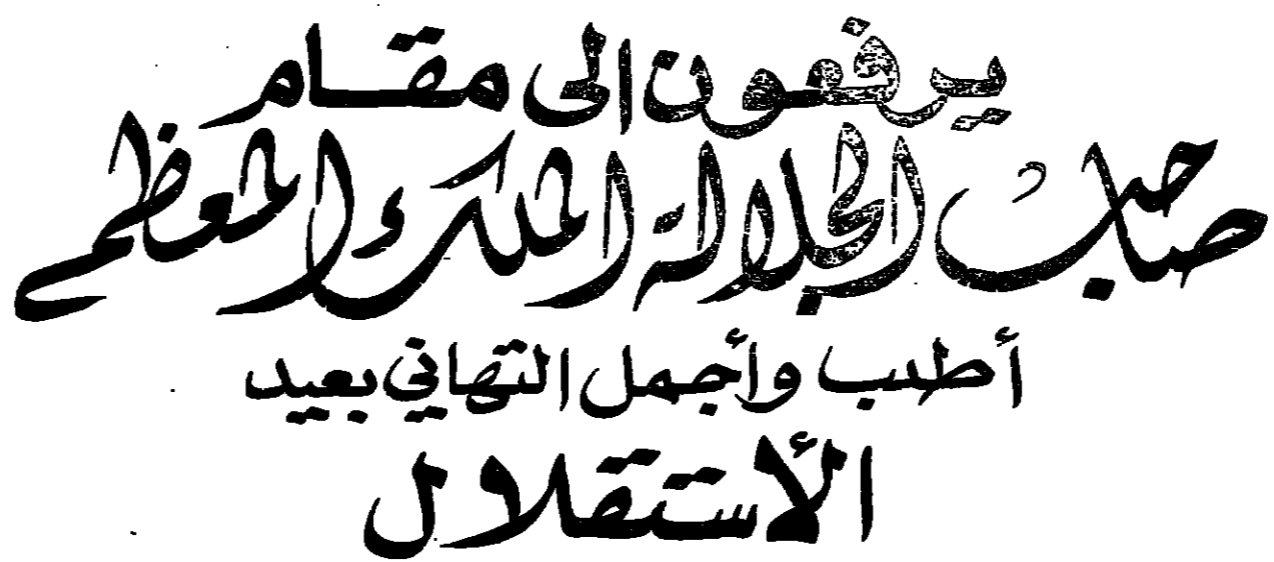 يرفعون الى مقام
صاحب الجلالة الملك المعظم
أطيب وأجمل التهاني بعيد
الأستقلال